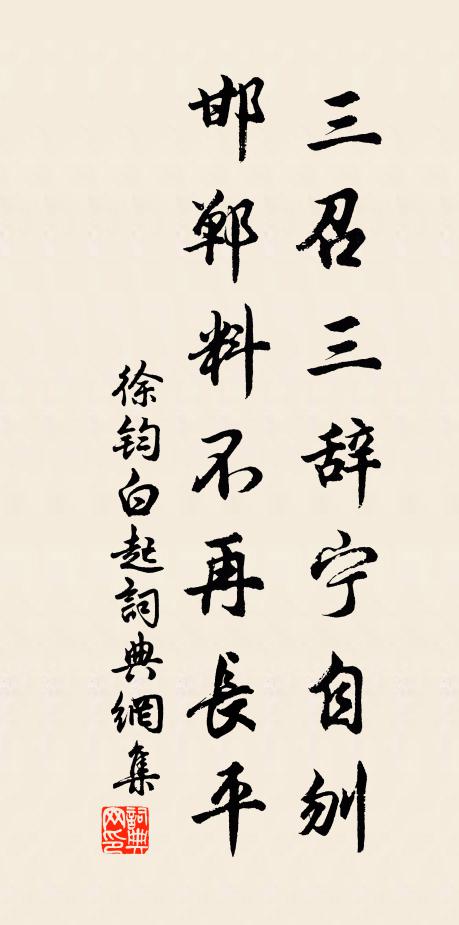 三召三辞宁自刎
邯郸料不再長平
徐钧白起詞典網集
詞典网印